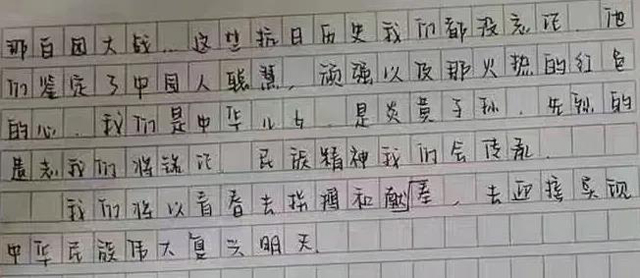 那百团大战...这些抗日历史我们都没忘记.他
们鉴定了中国人聪慧,顽强以及那火热的红色
的心.我们是中华儿女.是炎黄子孙.先烈的
遗志我们将铭记.民族精神我们会传承.
我们将以青春去拼搏和献差,去迎接实现
中华民族伟大复兴明天.